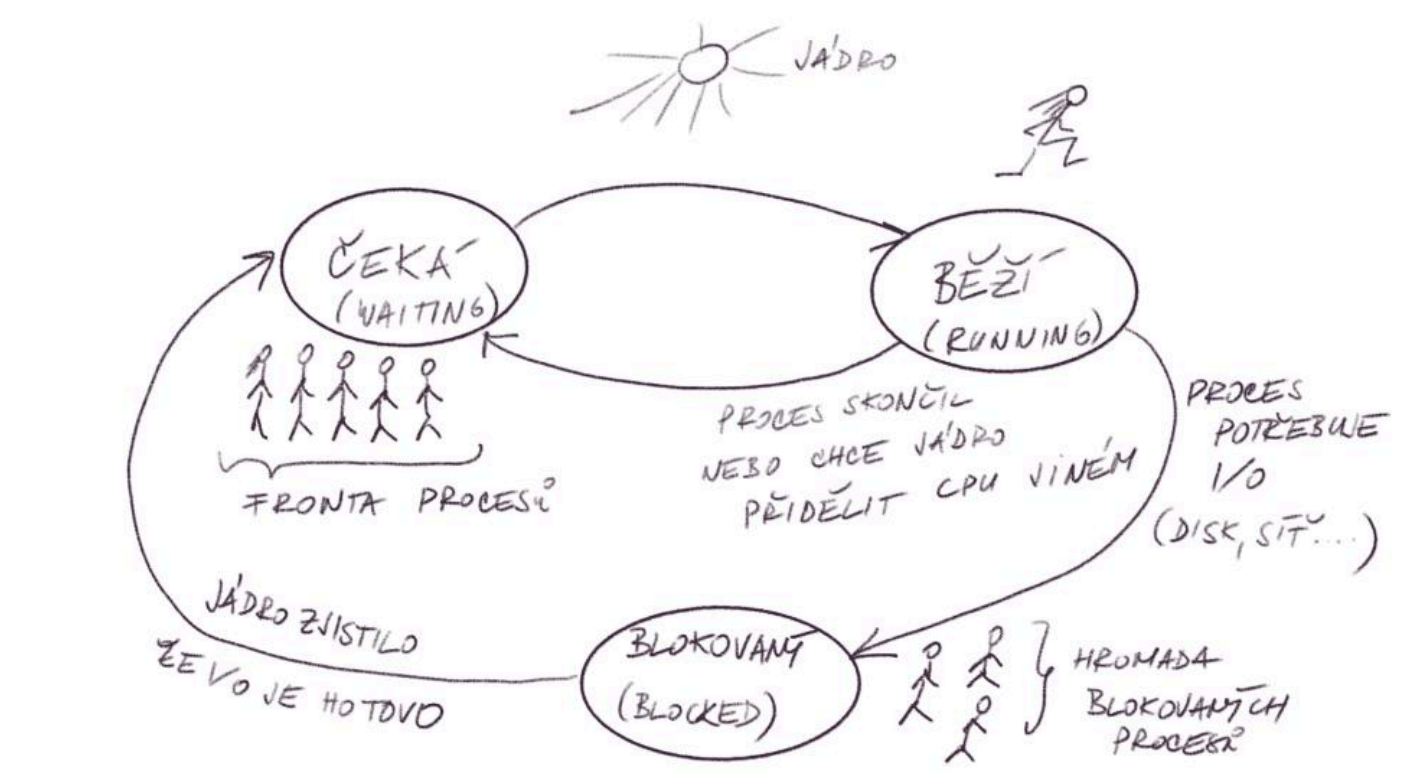 JÁDRO
ČEKÁ
(WAITING)
BĚŽÍ
(RUNNING)
FRONTA PROCESŮ
PROCES SKONČIL
NEBO CHCE JÁDRO
PŘIDĚLIT CPU JINÉM
PROCES
POTŘEBUJE
I/O
(DISK, SÍŤ....)
JÁDRO ZJISTILO
ŽE I/O JE HOTOVO
BLOKOVANÝ
(BLOCKED)
HROMADA
BLOKOVANÝCH
PROCESŮ